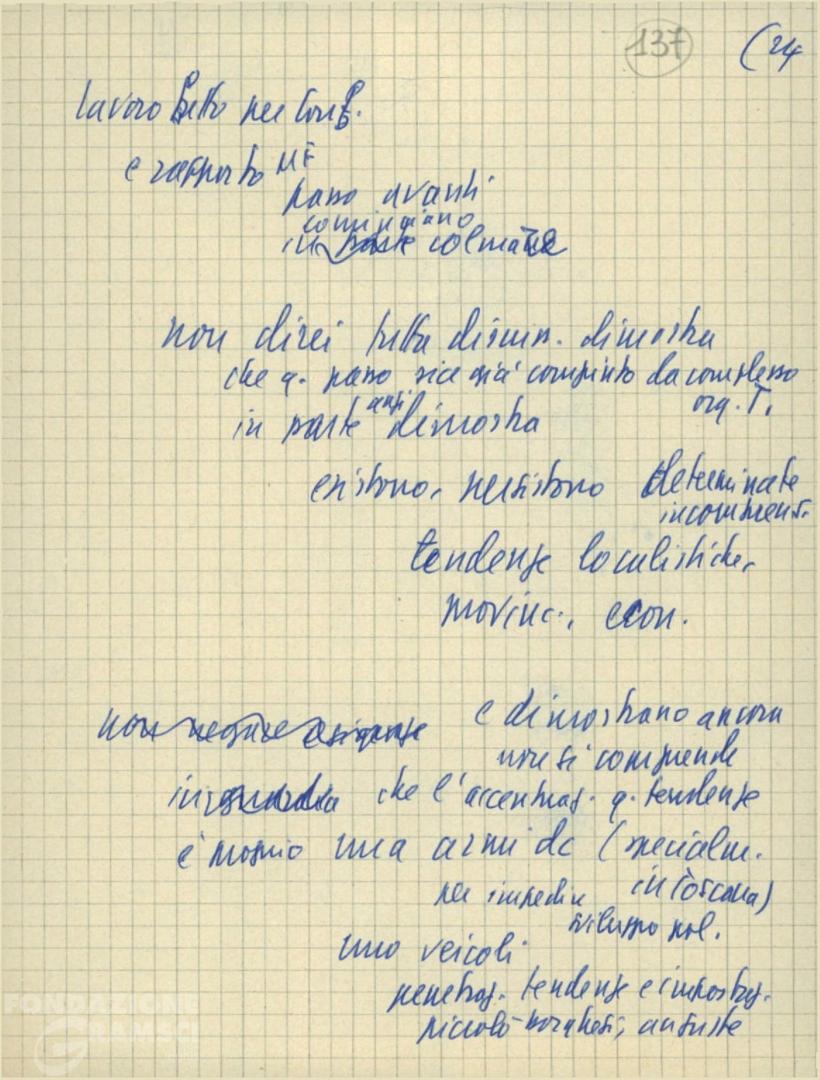 137 (24
lavoro fatto per Conf.
e rapporto MF
passo avanti
cominciano
in parte colmare
non direi tutta discuss. dimostra
che q. passo sia già compiuto da complesso
org. T.
in parte anzi dimostra
esistono, persistono determinate
incomprens.
tendenze localistiche,
provinc., econ.
non negare esigenze e dimostrano ancora
non si comprende
in guardia che l'accentuaz. q. tendenze
è proprio una armi dc (specialm.
in Toscana)
per impedire
sviluppo pol.
uno veicoli
penetraz. tendenze e impostaz.
piccolo-borghesi, anguste
FONDAZIONE
GRAMSCI